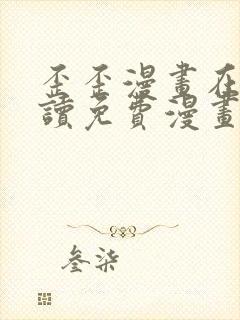 歪歪漫畫在
讀免費漫畫
叁柒